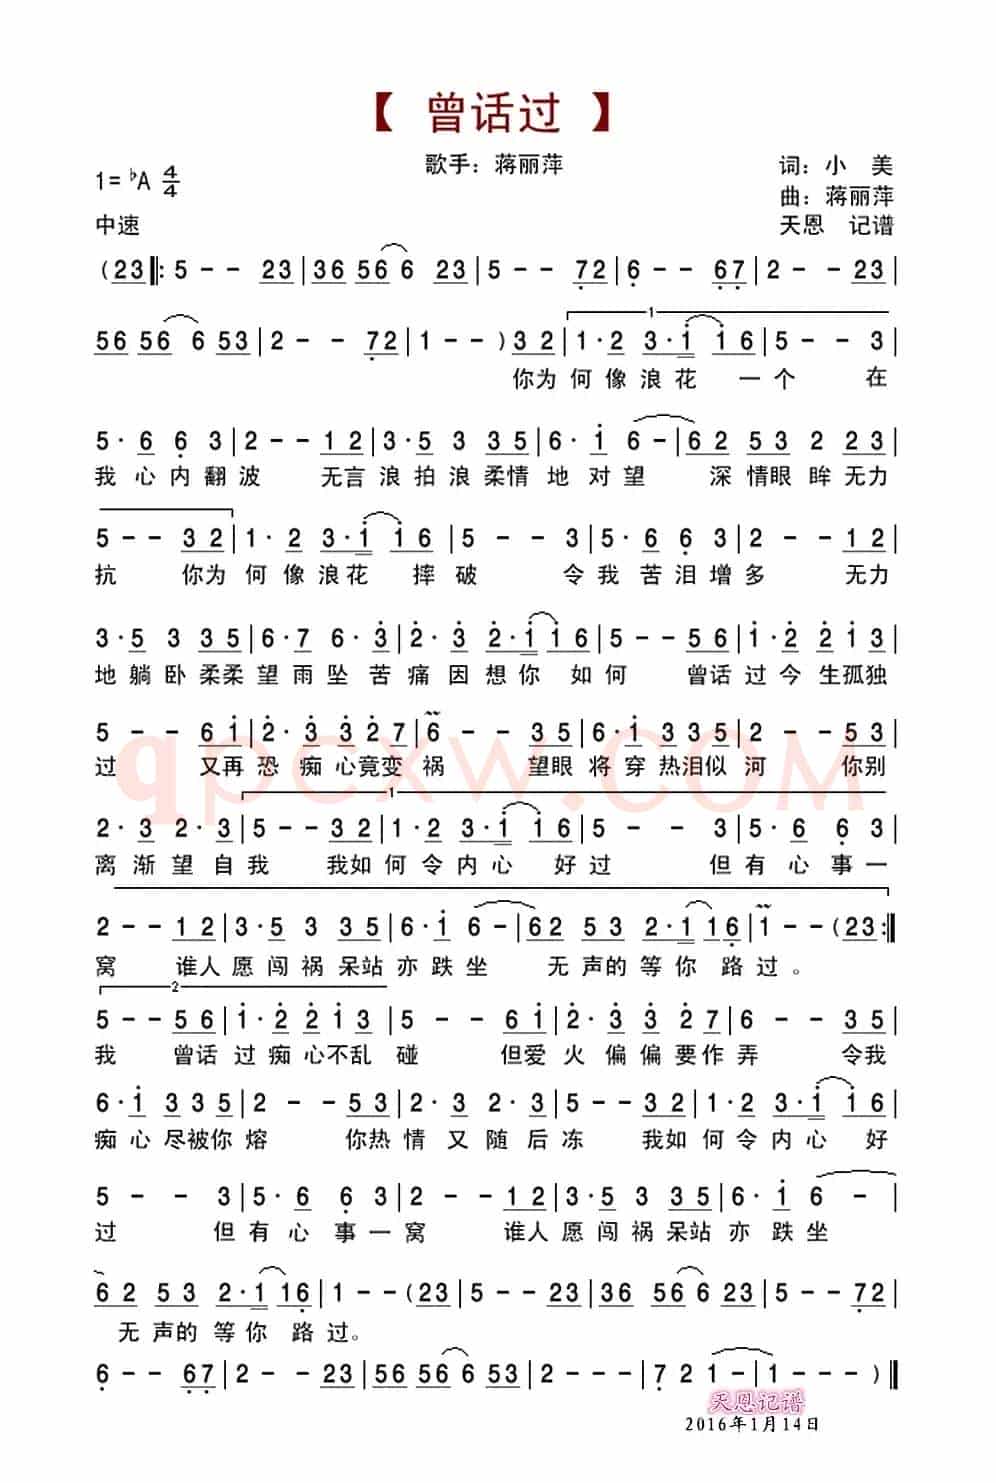 【 曾话过 】
歌手：蒋丽萍
词：小 美
1= ♭A 4/4
曲：蒋丽萍
中速
天恩 记谱
( 2 3 ‖: 5 - - 2 3 | 3 6 5 6 6 2 3 | 5 - - 7 2 | 6 - - 6 7 | 2 - - 2 3 |
1
5 6 5 6 6 5 3 | 2 - - 7 2 | 1 - - ) 3 2 | 1 · 2 3 · 1 1 6 | 5 - - 3 |
你为 何 像 浪 花 一 个 在
5 · 6 6 3 | 2 - - 1 2 | 3 · 5 3 3 5 | 6 · 1 6 - | 6 2 5 3 2 2 3 |
我 心 内 翻 波 无言 浪 拍 浪 柔情 地 对 望 深 情眼 眸 无力
5 - - 3 2 | 1 · 2 3 · 1 1 6 | 5 - - 3 | 5 · 6 6 3 | 2 - - 1 2 |
抗 你为 何 像 浪 花 摔 破 令 我 苦 泪 增 多 无力
3 · 5 3 3 5 | 6 · 7 6 · 3 | 2 · 3 2 · 1 1 6 | 5 - - 5 6 | 1 · 2 2 1 3 |
地 躺 卧 柔柔 望 雨 坠 苦 痛 因 想 你 如 何 曾话 过 今 生孤独
5 - - 6 1 | 2 · 3 3 2 7 | 6 - - 3 5 | 6 · 1 3 3 5 | 2 - - 5 3 |
过 又再 恐 痴 心竟变 祸 望眼 将 穿 热泪似 河 你别
qpcxw.COM
1
2 · 3 2 · 3 | 5 - - 3 2 | 1 · 2 3 · 1 1 6 | 5 - - 3 | 5 · 6 6 3 |
离 渐 望 自 我 我如 何 令 内 心 好 过 但 有 心 事 一
2 - - 1 2 | 3 · 5 3 3 5 | 6 · 1 6 - | 6 2 5 3 2 · 1 1 6 | 1 - - ( 2 3 :‖
窝 谁人 愿 闯 祸 呆站 亦 跌 坐 无 声的 等 你 路 过。
2
5 - - 5 6 | 1 · 2 2 1 3 | 5 - - 6 1 | 2 · 3 3 2 7 | 6 - - 3 5 |
我 曾话 过 痴 心不乱 碰 但爱 火 偏 偏 要作 弄 令我
6 · 1 3 3 5 | 2 - - 5 3 | 2 · 3 2 · 3 | 5 - - 3 2 | 1 · 2 3 · 1 1 6 |
痴 心 尽被你 熔 你热 情 又 随 后 冻 我如 何 令 内 心 好
5 - - 3 | 5 · 6 6 3 | 2 - - 1 2 | 3 · 5 3 3 5 | 6 · 1 6 - |
过 但 有 心 事 一 窝 谁人 愿 闯 祸 呆站 亦 跌 坐
6 2 5 3 2 · 1 1 6 | 1 - - ( 2 3 | 5 - - 2 3 | 3 6 5 6 6 2 3 | 5 - - 7 2 |
无 声的 等 你 路 过。
6 - - 6 7 | 2 - - 2 3 | 5 6 5 6 6 5 3 | 2 - - - | 7 2 1 - | 1 - - - ) ‖
天恩记谱
2016年1月14日